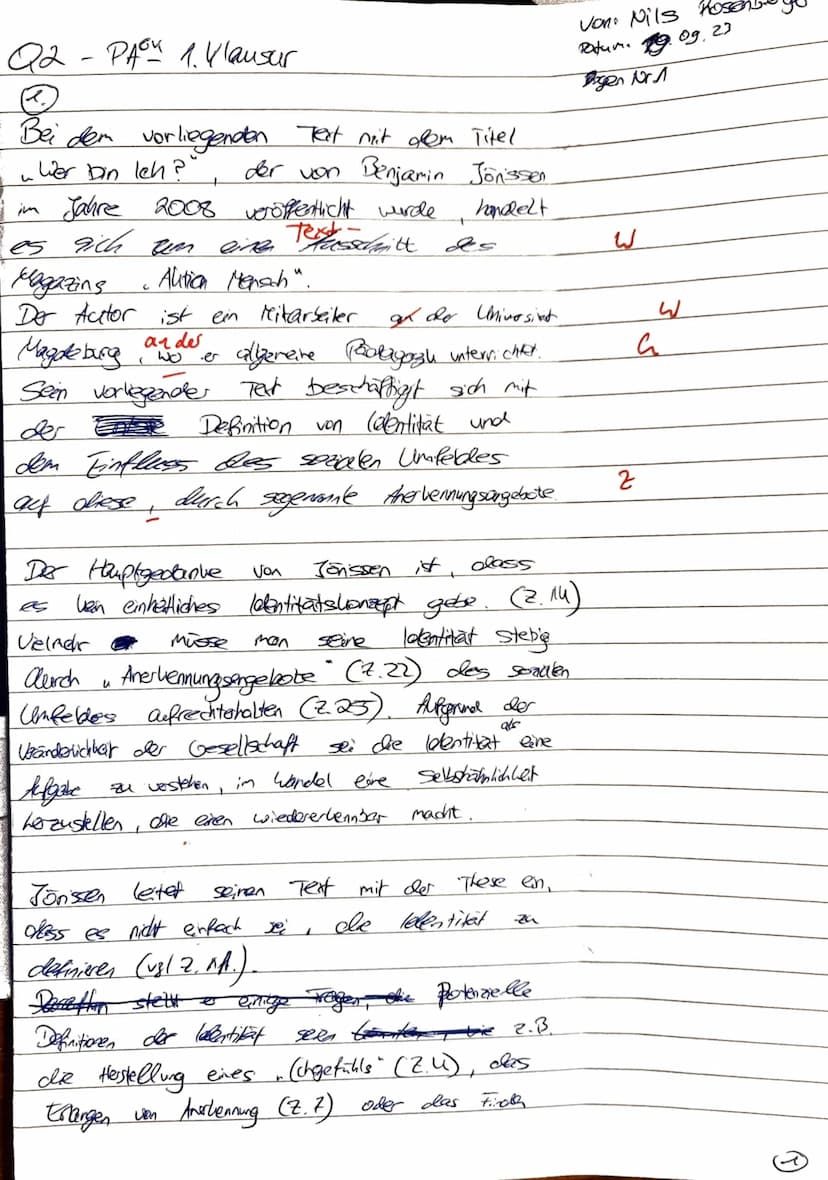 Von: Nils Rosenberger
Datum: 19.09.23
Bogen Nr 1
Q2 - PA GK 1. Klausur
1.
Bei dem vorliegenden Text mit dem Titel
„Wer bin Ich?“, der von Benjamin Jörissen
im Jahre 2008 veröffentlicht wurde, handelt
es sich um einen Text- Ausschnitt des W
Magazins „Aktion Mensch“.
Der Autor ist ein Mitarbeiter an der Universität W
Magdeburg, wo an der er allgemeine Pädagogik unterrichtet. G
Sein vorliegender Text beschäftigt sich mit
der Definition von Identität und
dem Einfluss des sozialen Umfeldes
auf diese, durch sogenannte Anerkennungsangebote. Z
Der Hauptgedanke von Jörissen ist, dass
es kein einheitliches Identitätskonzept gebe. (Z.14)
Vielmehr müsse man seine Identität stetig
durch „Anerkennungsangebote“ (Z.22) des sozialen
Umfeldes aufrechterhalten (Z.25). Aufgrund der
Veränderlichkeit der Gesellschaft sei die Identität als eine
Aufgabe zu verstehen, im Wandel eine Selbstähnlichkeit
herzustellen, die einen wiedererkennbar macht.
Jörissen leitet seinen Text mit der These ein,
dass es nicht einfach sei, die Identität zu
definieren (vgl Z. 1f.).
Daraufhin stellt er einige Fragen, die Potenzielle
Definitionen der Identität seien könnten, wie z.B.
die Herstellung eines „Ichgefühls“ (Z.4), das
Erlangen von Anerkennung (Z.7) oder das Finden
1